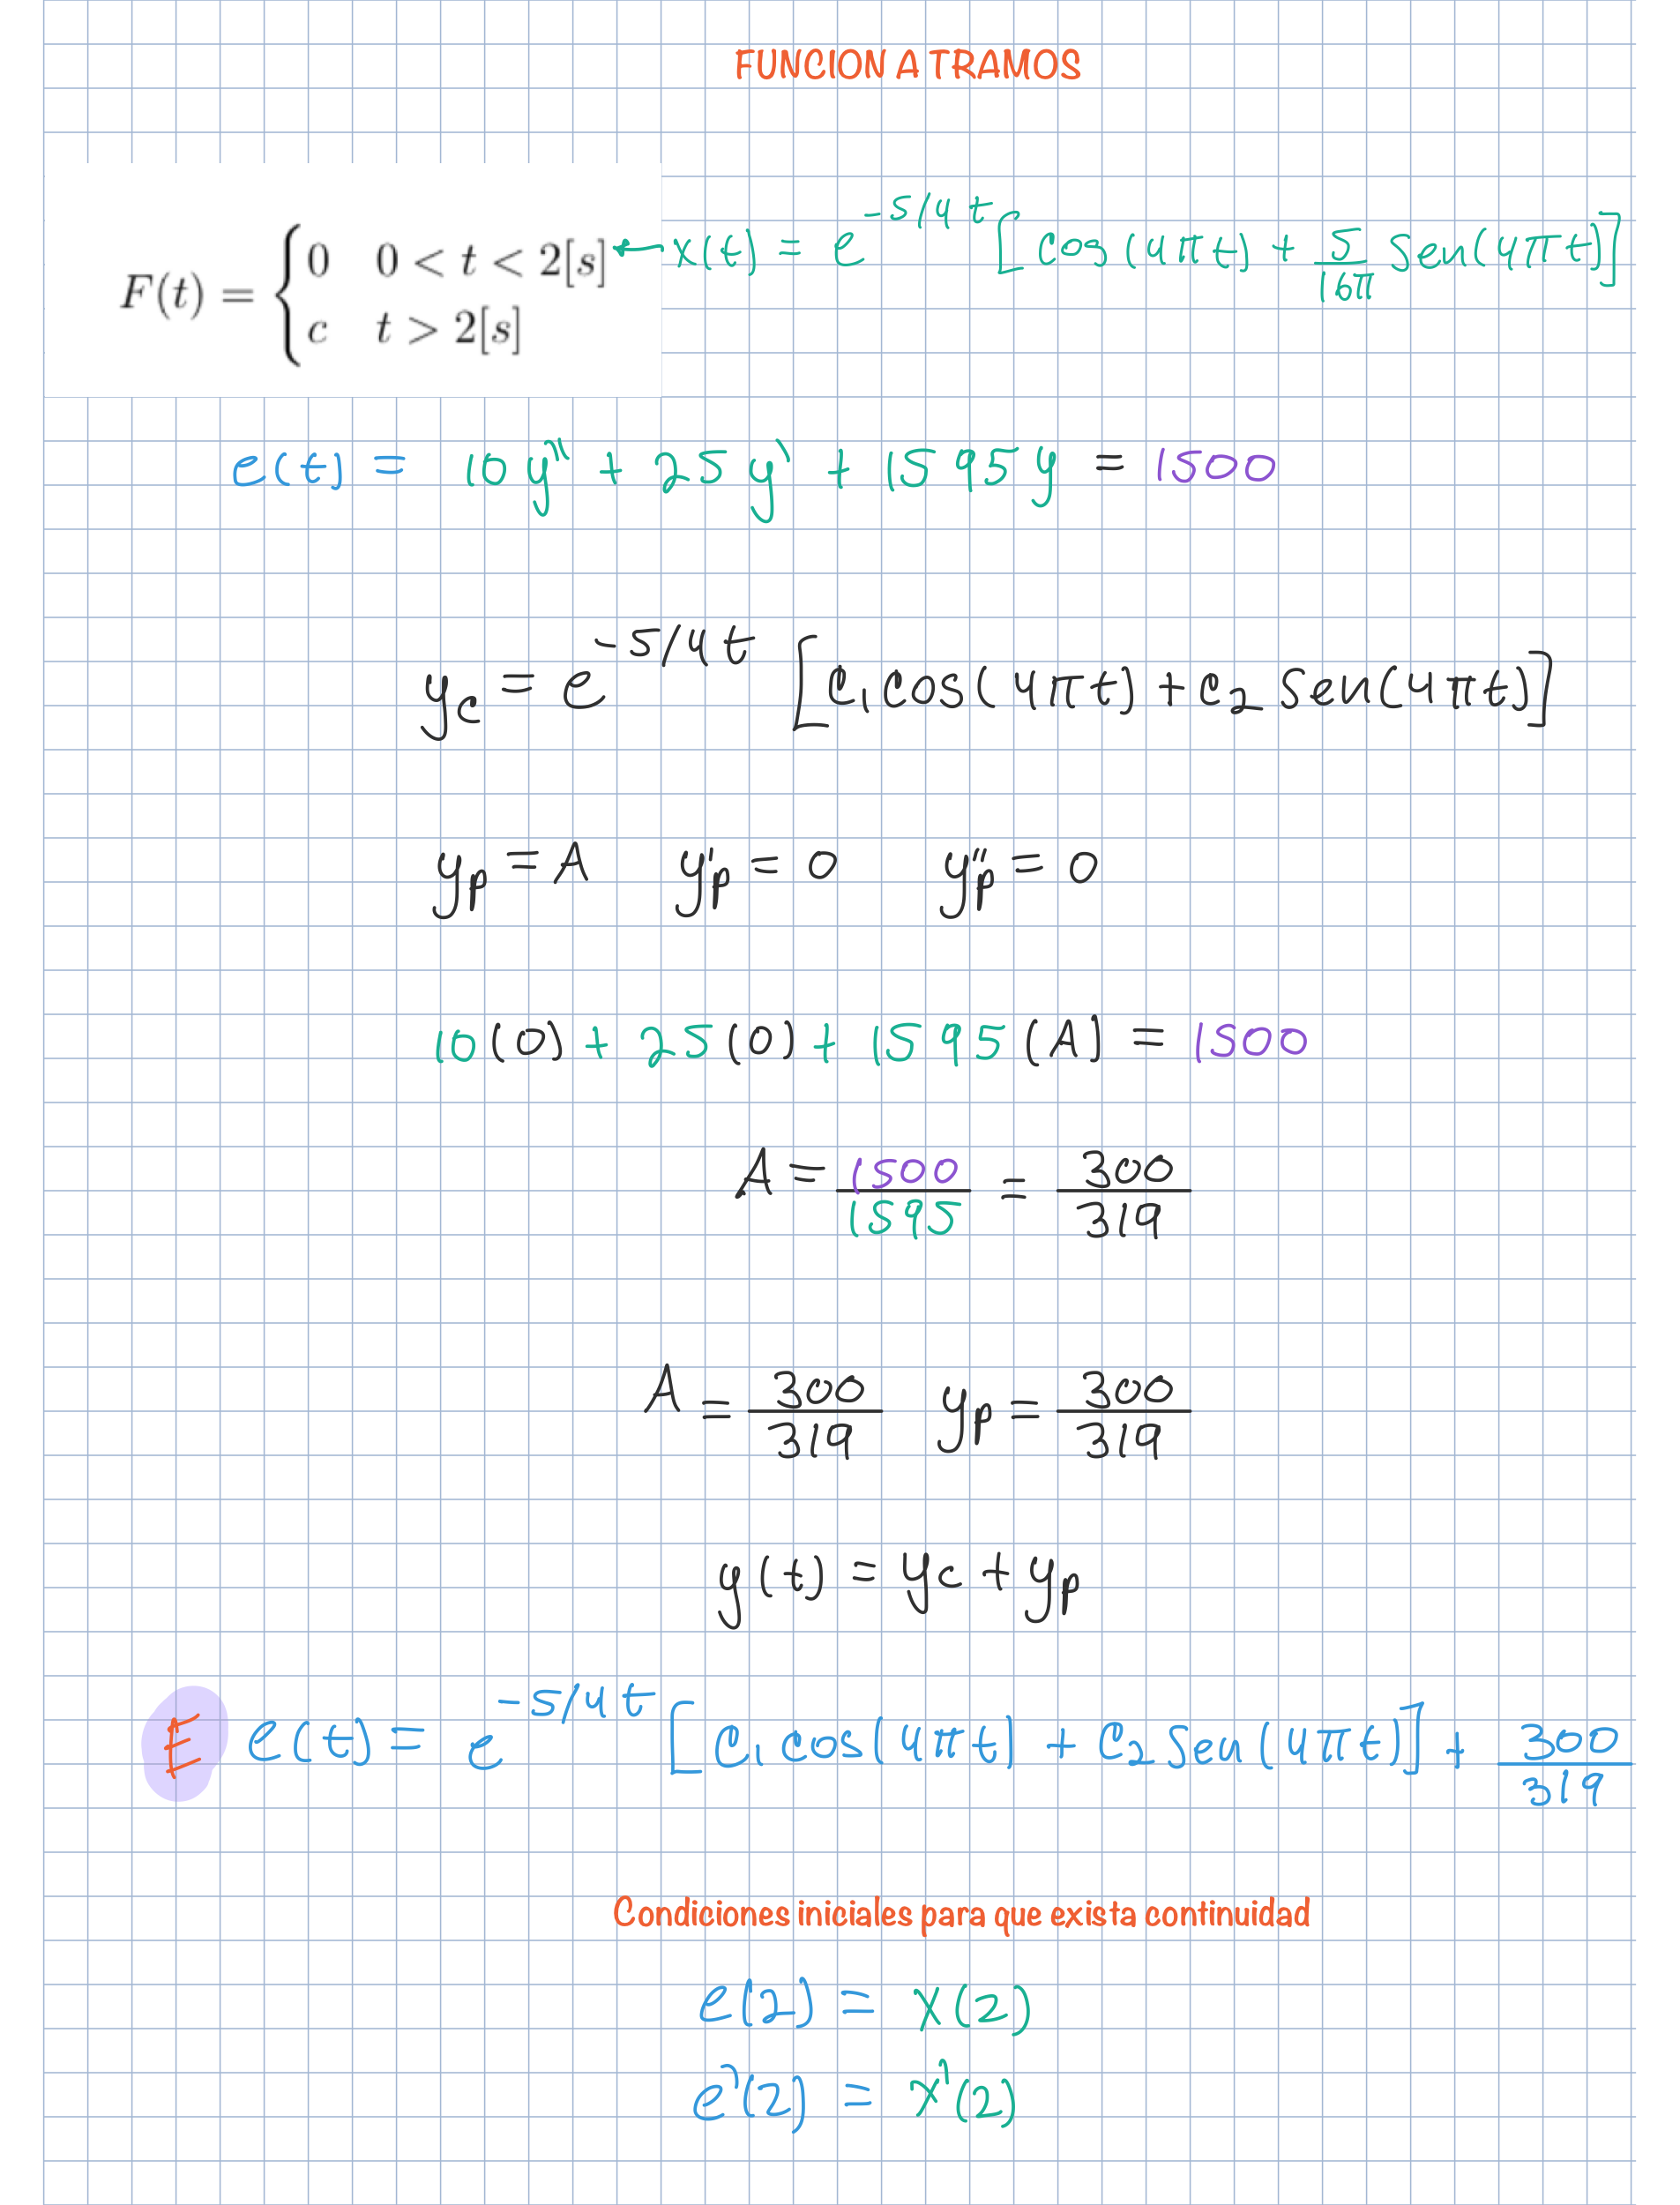 FUNCION A TRAMOS
F(t) = { 0 0 < t < 2[s] ← x(t) = e^{-5/4 t} [cos(4πt) + 5/16π Sen(4πt)]
c t > 2[s]
e(t) = 10y'' + 25y' + 1595y = 1500
y_c = e^{-5/4 t} [c₁cos(4πt) + c₂ Sen(4πt)]
y_p = A y'_p = 0 y''_p = 0
10(0) + 25(0) + 1595(A) = 1500
A = 1500/1595 = 300/319
A = 300/319 y_p = 300/319
y(t) = y_c + y_p
E e(t) = e^{-5/4 t} [c₁cos(4πt) + c₂ Sen(4πt)] + 300/319
Condiciones iniciales para que exista continuidad
e(2) = x(2)
e'(2) = x'(2)